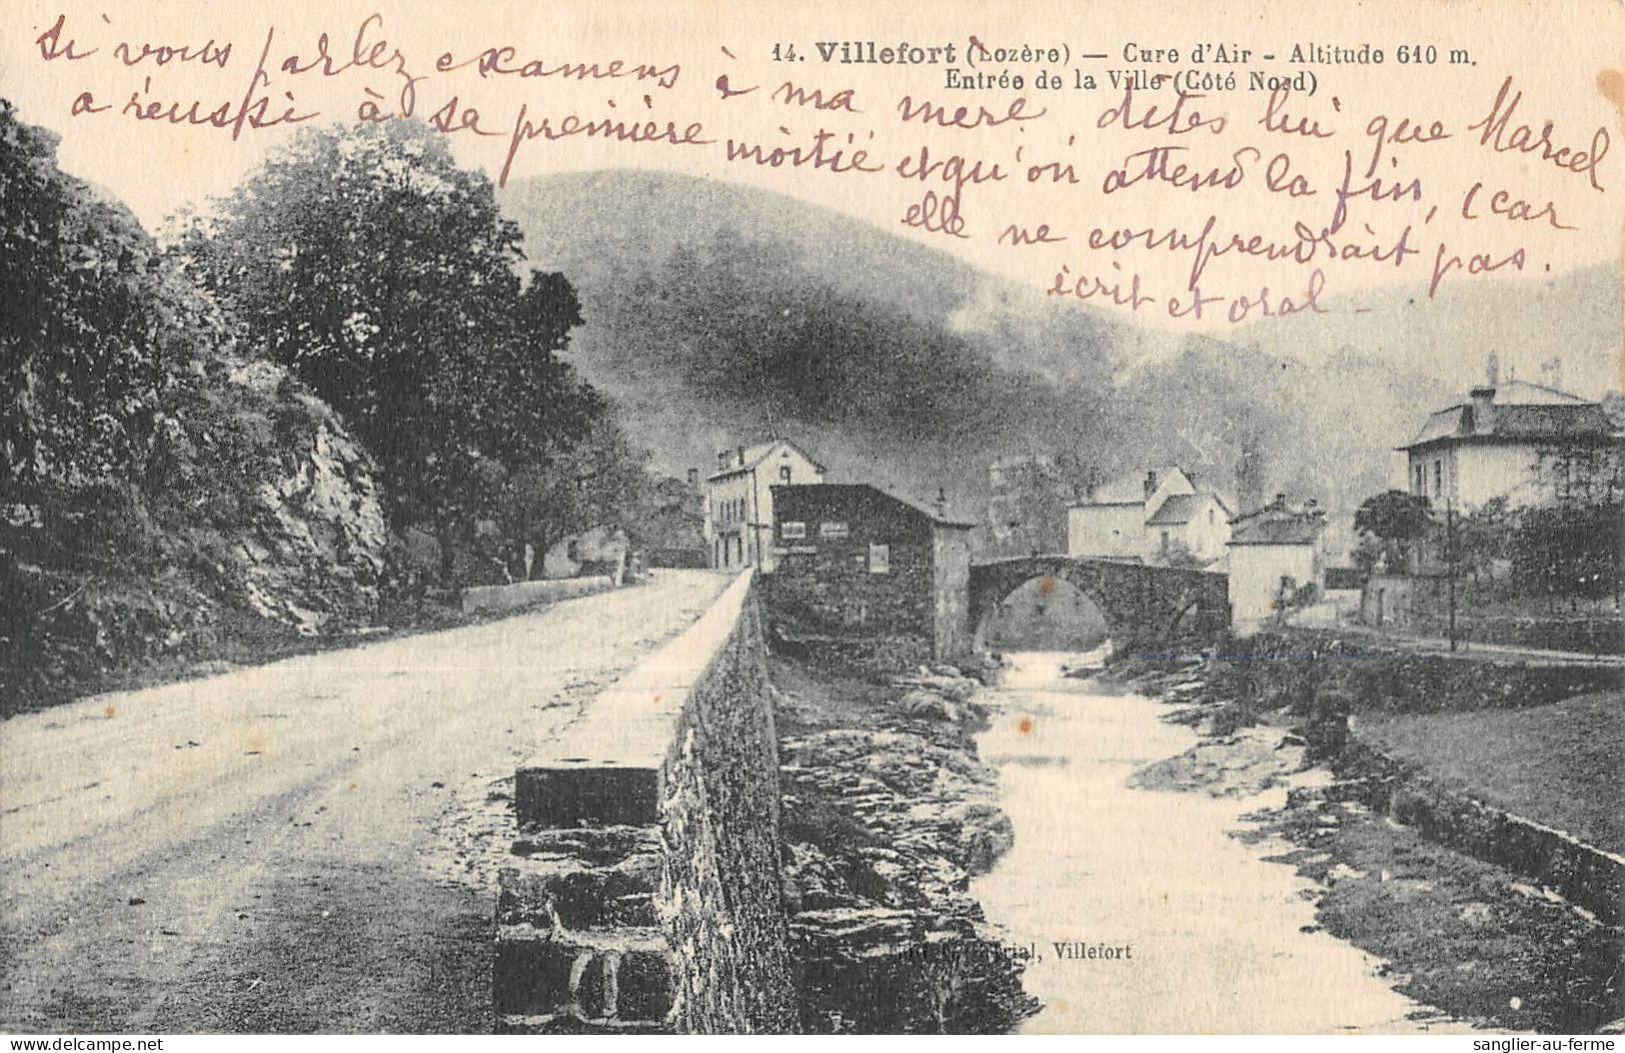 14. Villefort (Lozère) — Cure d'Air - Altitude 610 m.
Entrée de la Ville (Côté Nord)
si vous parlez examens à ma mere, dites lui que Marcel
a réussi à sa première moitié et qu'on attend la fin, (car
elle ne comprendrait pas.
écrit et oral -
Villefort
www.delcampe.net
sanglier-au-ferme